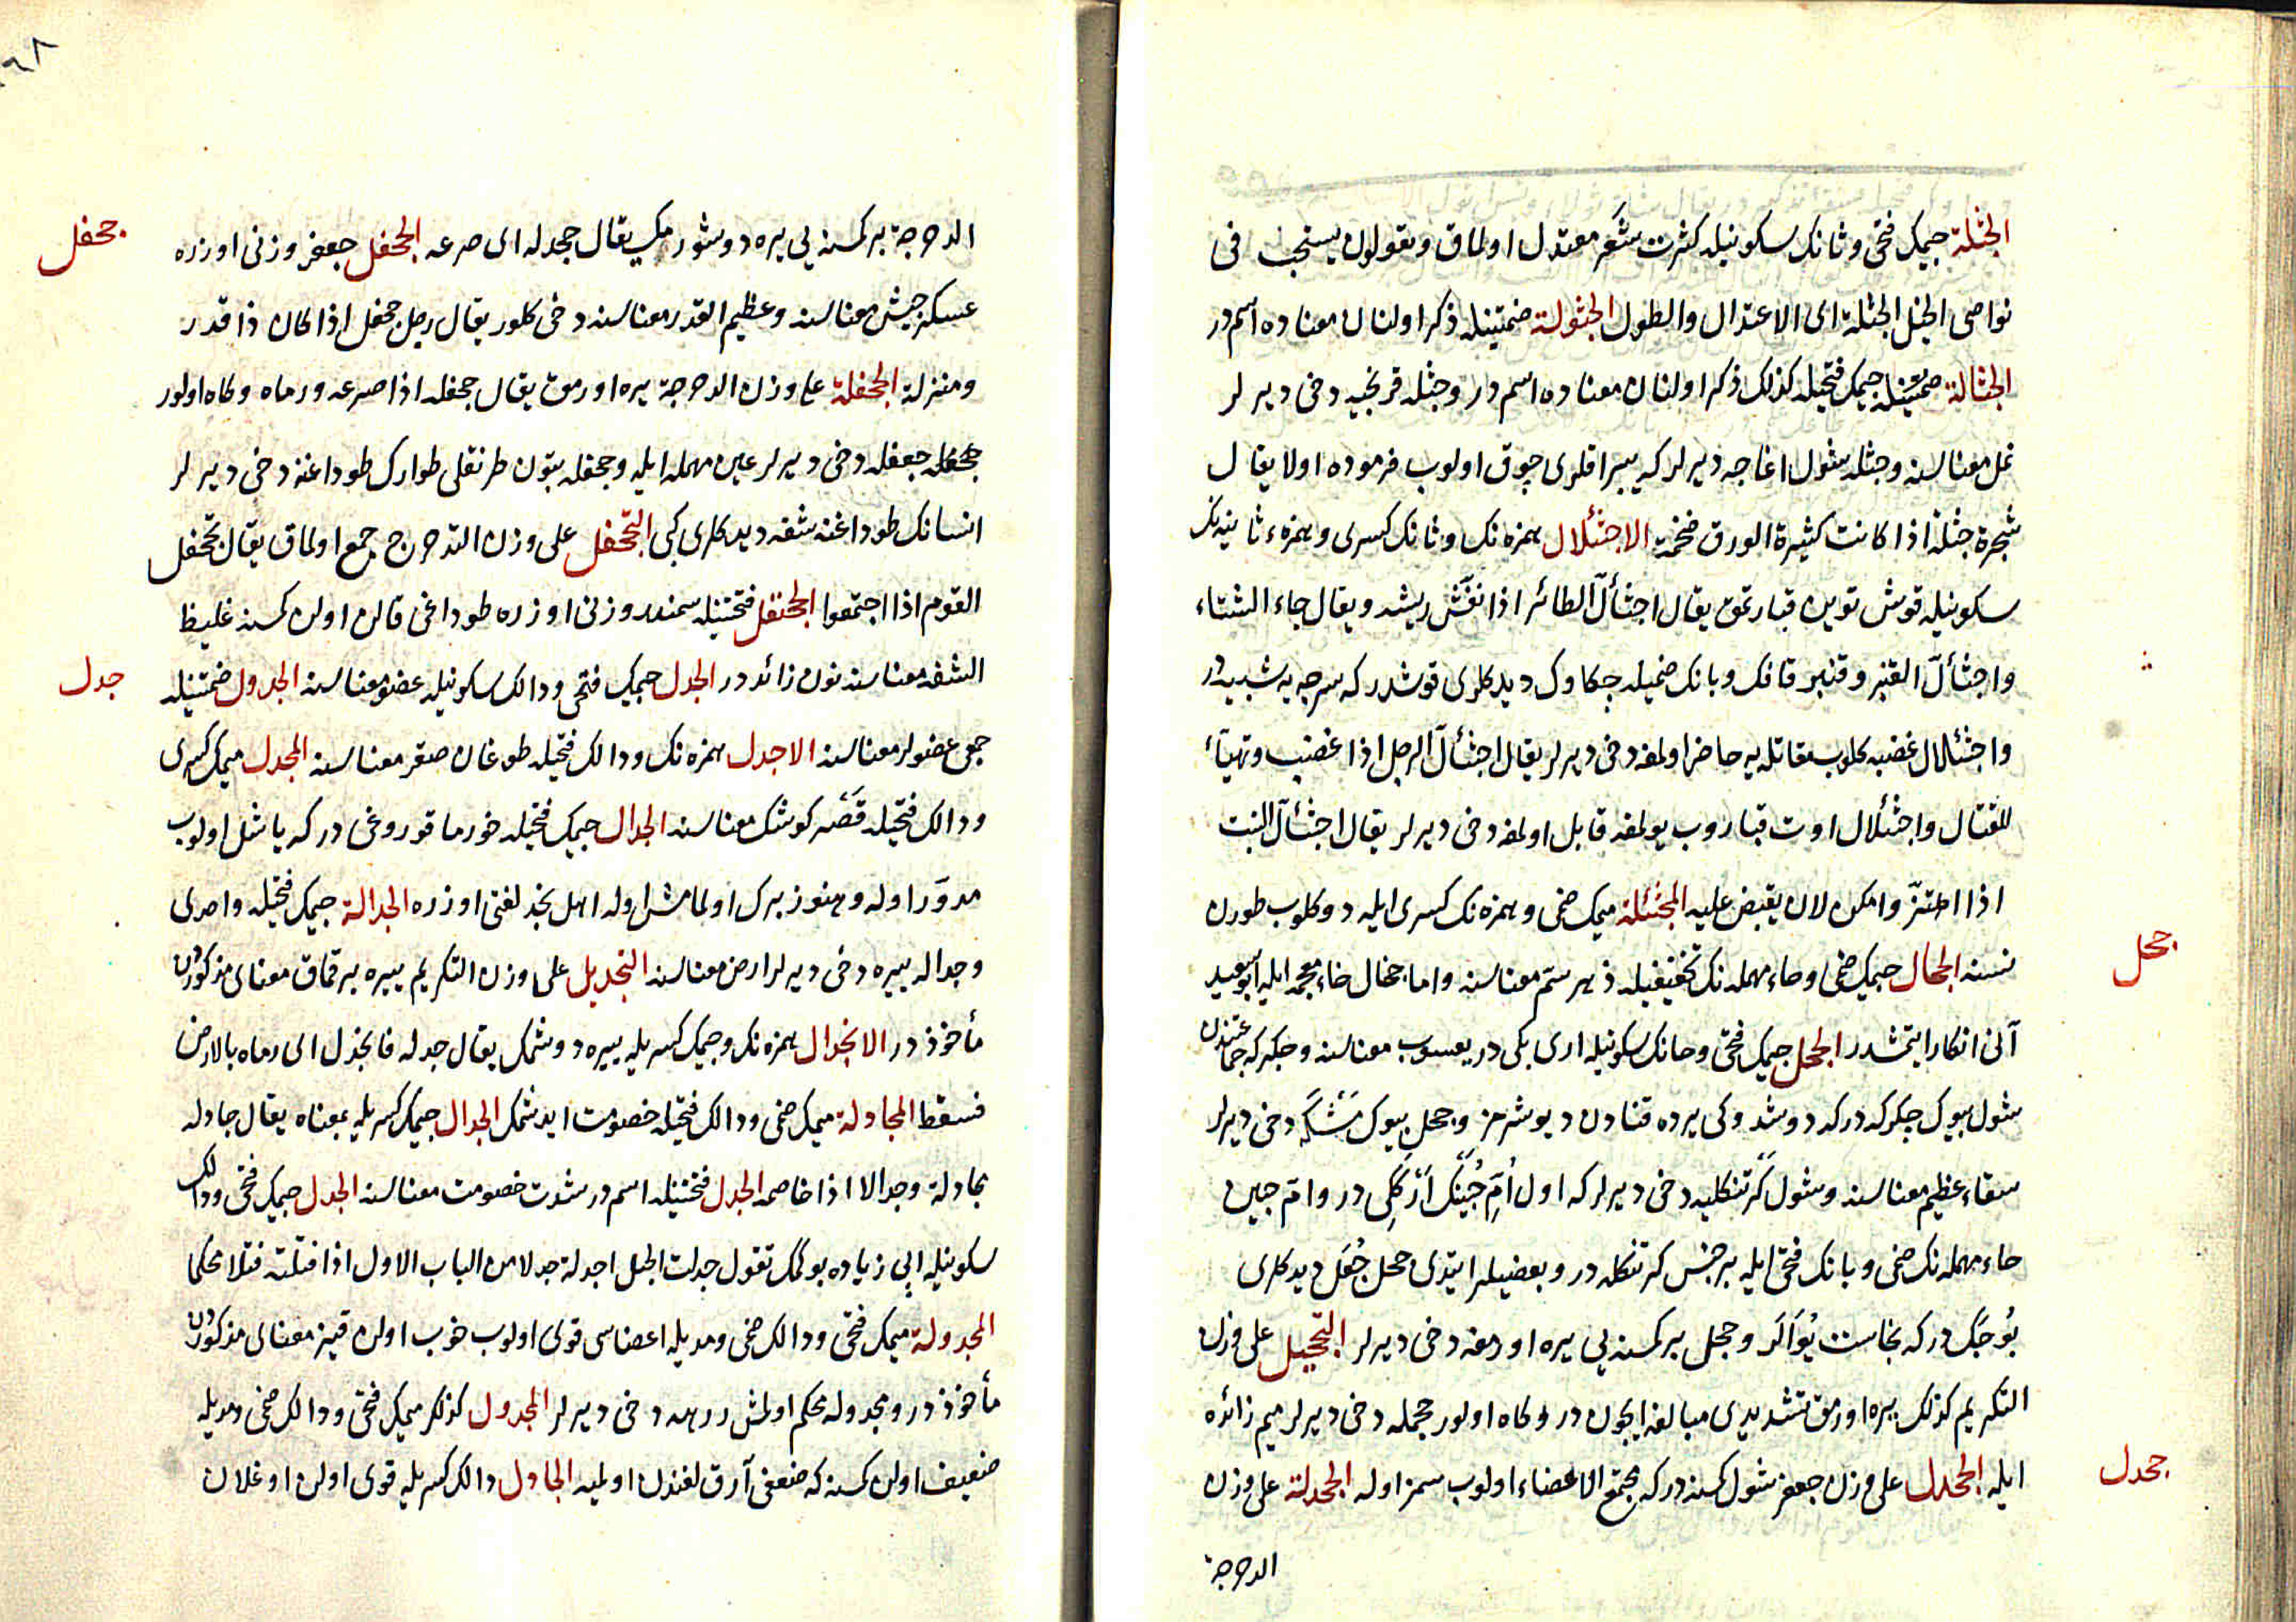 الجثلة جيمك فتحى وثانك سكونيله كثرت شَعَر معتدل اولماق وتقولون يستحب فى
نواصى الخيل الجثلة اى الاعتدال والطول الجثولة ضمتينله ذكر اولنان معناده اسم در
الجثالة جيمك فتحيله كذلك ذكر اولنان معناده اسم در وجثله قرنجيه دخى ديرلر
نمل معناسنه وجثله شول اغاجه ديرلر كه يپراقلرى چوق اولوب اولا يقال
شجرة جثلة اذا كانت كثيرة الورق ضخمة الاجثئلال همزه نك وثانك كسرى وهمزهٔ ثانيه نك
سكونيله قوش توين قبارتمق يقال اجثألّ الطائر اذا نفّش ريشه ويقال جاء الشتاء
واجثألّ القنبر وقنبر قافك وبانك ضميله چكاوك ديدكلرى قوشدر كه سرچه يه شبيهدر
واجثئلال غضبه كلوب مقاتله يه حاضر اولمغه دخى ديرلر يقال اجثألّ الرجل اذا غضب وتهيّأ
للقتال واجثئلال اوت قباروب يولمغه قابل اولمغه دخى ديرلر يقال اجثألّ النبت
اذا اهتزّ وامكن لان يقبض عليه المجثئلة ميمك ضمى وهمزه نك كسرى ايله دوكلوب طورن
جحل
نسنه الجحال جيمك ضمى وحاء مهمله نك تخفيفيله زهر سمّ معناسنه واما جخال خاء معجمه ايله ابو سعيد
آنى انكار ايتمشدر الجحل جيمك فتحى وحانك سكونيله ارى بكى در يعسوب معناسنه وچكركه
شول بيوك چكركه در كه دوشدوكى يرده قنادن ديوشرمز وجحل بيوك مَشَكَه دخى ديرلر
سقاء عظيم معناسنه وشول كرتنكليه دخى ديرلر كه اول اُمّ حُبَيْنك اَرْكَكى در وامّ حبين
حاء مهمله نك ضمى وبانك فتحى ايله بر جنس كرتنكله در وبعضيلر ايتدى جحل جُعَل ديدكلرى
بُوجَك در كه نجاست يُوَالَر وجحل بر كمسنه يى يره اورمغه دخى ديرلر التجحيل على وزن
التكريم كذلك يره اورمق تشديدى مبالغه ايچون در وكاه اولور جحمله دخى ديرلر ميم زائده
جحدل
ايله الجحدل على وزن جعفر شول كمسنه در كه مجتمع الاعضاء اولوب سمز اوله الجحدلة على وزن
الدحرجة

جحفل
الدحرجة بر كمسنه يى يره دوشورمك يقال جحدله اى صرعه الجحفل جعفر وزنى اوزره
عسكر جيش معناسنه وعظيم القدر معناسنه دخى كلور يقال رجل جحفل اذا كان ذا قدر
ومنزلة الجحفلة على وزن الدحرجة يره اورمق يقال جحفله اذا صرعه ورماه وكاه اولور
جعفله دخى ديرلر عين مهمله ايله وجحفله بتون طرنقلى طوارك طوداغنه دخى ديرلر
انسانك طوداغنه شفه ديدكلرى كبى التجحفل على وزن التدحرج جمع اولماق يقال تجحفل
القوم اذا اجتمعوا الجحنفل فتحتينله سمندر وزنى اوزره طوداغى قالن اولن كمسنه غليظ
جدل
الشفه معناسنه نون زائد در الجدل جيمك فتحى ودالك سكونيله عضو معناسنه الجدول ضمتينله
جمعى عضولر معناسنه الاجدل همزه نك ودالك فتحيله طوغان صقر معناسنه المجدل ميمك كسرى
ودالك فتحيله قَصْر كوشك معناسنه الجدال جيمك فتحيله خورما قوروغى در كه ياشل اولوب
مدوَّر اوله وهنوز برك اولمامش اوله اهل نجد لغتى اوزره الجدالة جيمك فتحيله واحدى
وجداله ييره دخى ديرلر ارض معناسنه التجديل على وزن التكريم ييره برقماق معناى مذكوردن
مأخوذ در الانجدال همزه نك وجيمك كسريله ييره دوشمك يقال جدله فانجدل اى رماه بالارض
فسقط المجادلة ميمك ضمى ودالك فتحيله خصومت ايدشمك الجدال جيمك كسريله بمعناه يقال جادله
مجادلة وجدالا اذا خاصمه الجدل فتحتينله اسم در شدت خصومت معناسنه الجدل جيمك فتحى ودالك
سكونيله ايپى زياده بوكمك تقول جدلت الحبل اجدله جدلا من الباب الاول اذا فتلته فتلا محكما
المجدولة ميمك فتحى ودالك ضمى ومديله اعضاسى قوى اولوب خوب اولن قيز معناى مذكوردن
مأخوذ در ومجدوله محكم اولمش زرهه دخى ديرلر المجدول كذلك ميمك فتحى ودالك ضمى ومديله
ضعيف اولن كمسنه كه ضعفى آرقلغندن اولميه الجادل دالك كسريله قوى اولن اوغلان